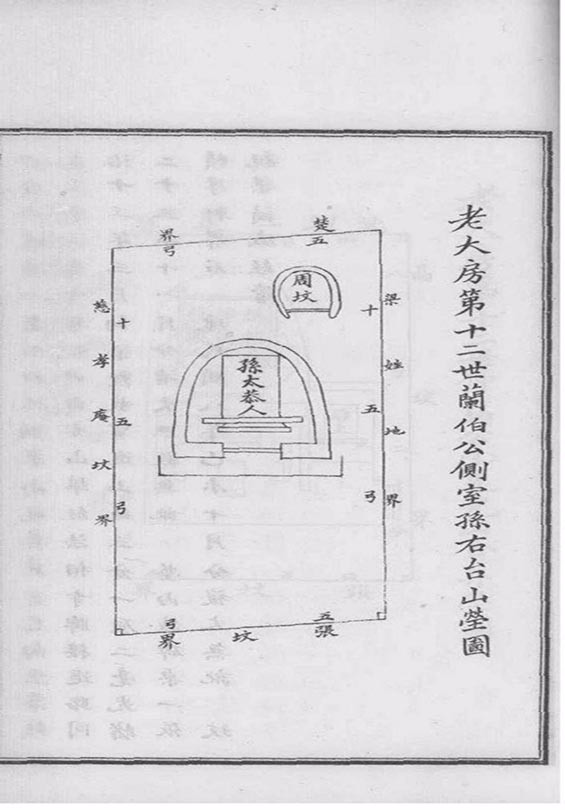 老大房第十二世蘭伯公側室孫右台山塋圖
楚界
五弓
梁姓地界
十五弓
周坟
孫太恭人
十五弓
慈孝庵坟界
五弓
張坟界